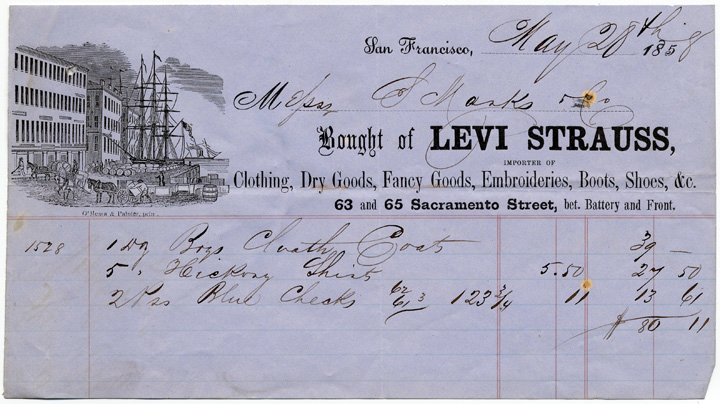 San Francisco, May 28th 1858
Messrs S Marks & Co
Bought of LEVI STRAUSS,
IMPORTER OF
Clothing, Dry Goods, Fancy Goods, Embroideries, Boots, Shoes, &c.
63 and 65 Sacramento Street, bet. Battery and Front.
O'Meara & Painter, prin.
1528 1 Dz Boys Coats 39 —
5 " Hickory Shirts 5.50 27 50
2 Pss Blue Checks 62 61 3 123 3/4 11 13 61
$ 80 11